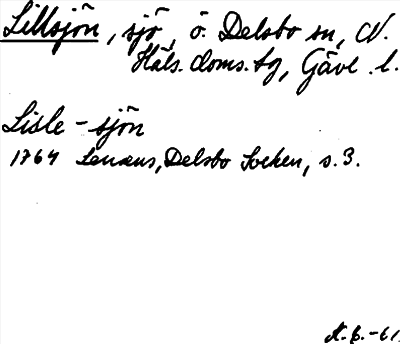 Lillsjön, sjö, ö. Delsbo sn, N.
Häls. doms. tg, Gävl. l.
Lisle-sjön
1764 Lenæus, Delsbo Socken, s. 3.
A.B.-61.